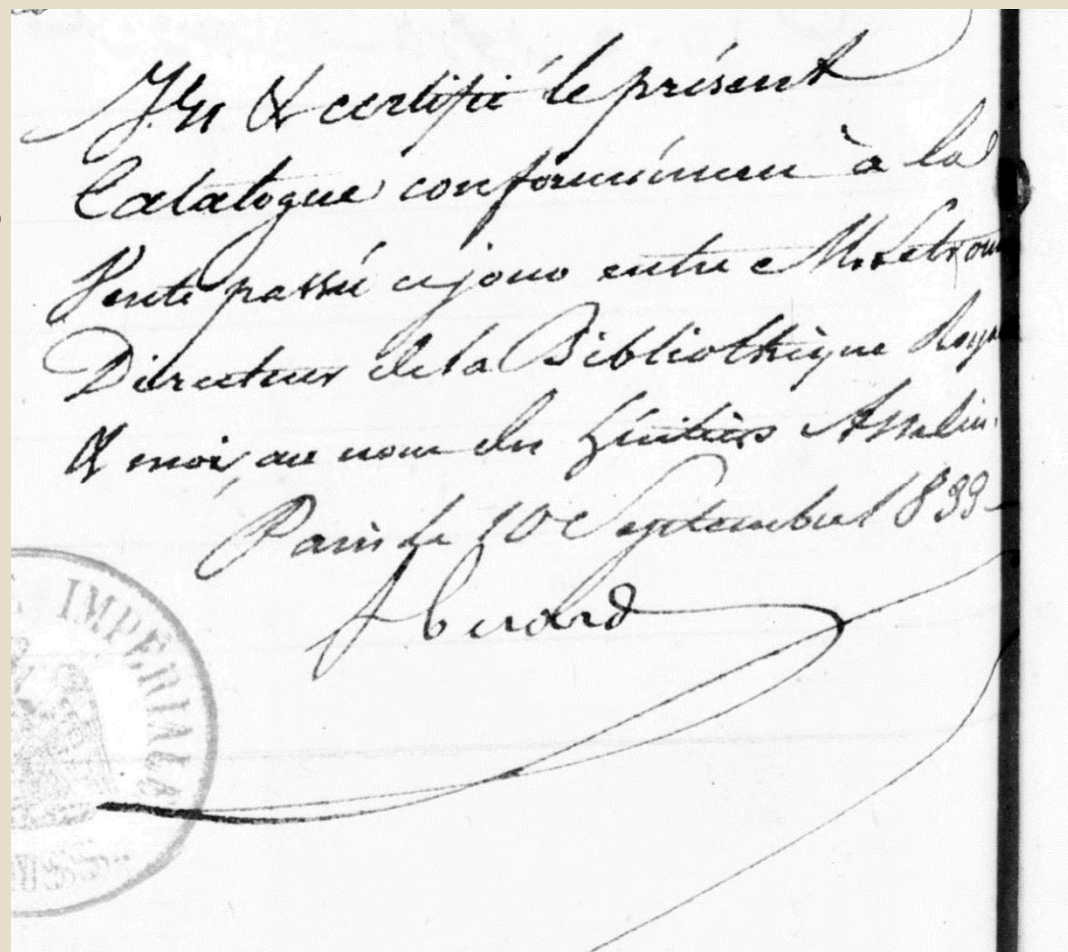 Vu & certifié le présent
Catalogue conformément à la
Vente passée ce jour entre Mr Letronne
Directeur de la Bibliothèque Royale
& moi, au nom des héritiers Asselin.
Paris le 10 Septembre 1833
IMPÉRIALE